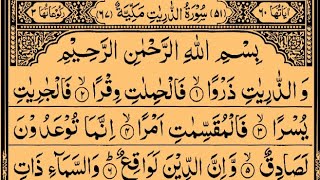 اٰیَاتُهَا ٦٠ (٥١) سُوْرَةُ الذّٰرِيٰتِ مَكِّيَّةٌ (٦٧) رُكُوْعَاتُهَا ٣
بِسْمِ اللّٰهِ الرَّحْمٰنِ الرَّحِيْمِ
وَالذّٰرِيٰتِ ذَرْوًا ۙ﴿۱﴾ فَالْحٰمِلٰتِ وِقْرًا ۙ﴿۲﴾ فَالْجٰرِيٰتِ
يُسْرًا ۙ﴿۳﴾ فَالْمُقَسِّمٰتِ اَمْرًا ۙ﴿۴﴾ اِنَّمَا تُوْعَدُوْنَ
لَصَادِقٌ ۙ﴿۵﴾ وَّاِنَّ الدِّيْنَ لَوَاقِعٌ ؕ﴿۶﴾ وَالسَّمَآءِ ذَاتِ